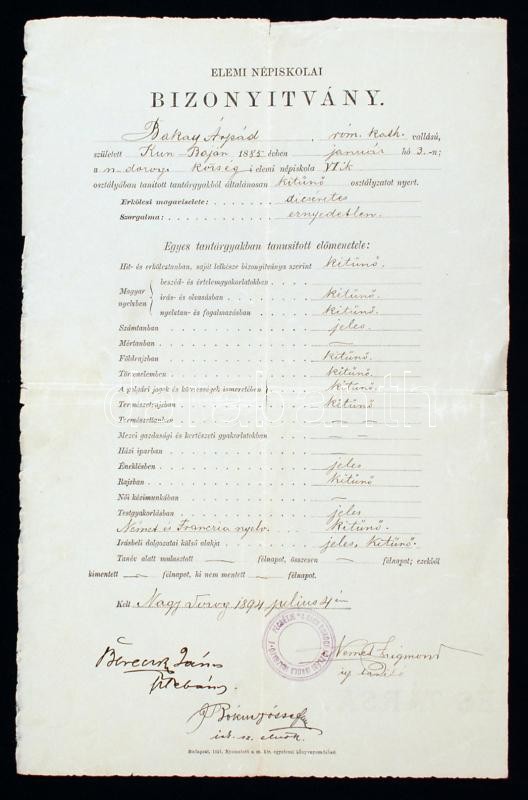 ELEMI NÉPISKOLAI
BIZONYITVÁNY.
Bakay Árpád, róm. kath. vallású,
született Kun Baján 1885 évben január hó 3.-n;
a n. dorogi község i elemi népiskola VI ik
osztályában tanított tantárgyakból általánosan kitünő osztályzatot nyert.
Erkölcsi magaviselete: dicséretes
Szorgalma: ernyedetlen.
Egyes tantárgyakban tanusított előmenetele:
Hit- és erkölcstanban, saját lelkésze bizonyítványa szerint kitünő.
Magyar nyelvben
beszéd- és értelemgyakorlatokban
irás- és olvasásban kitünő.
nyelvtan- és fogalmazásban kitünő.
Számtanban jeles.
Mértanban —
Földrajzban kitünő.
Történelemben kitünő.
A polgári jogok és kötelességek ismeretében kitünő.
Természetrajzban kitünő
Természettanban — —
Mezei gazdasági és kertészeti gyakorlatokban — —
Házi iparban —
Éneklésben jeles
Rajzban kitünő
Női kézimunkában —
Testgyakorlásban jeles
Német és Franczia nyelv. kitünő.
Irásbeli dolgozatai külső alakja jeles, kitünő.
Tanév alatt mulasztott — félnapot, összesen — félnapot; ezekből
kimentett — félnapot, ki nem mentett — félnapot.
Kelt Nagy Dorog 1894 julius 4 én
János
Német Zsigmond
plébános.
ig. tanító
isk. sz. elnök
Budapest, 1891. Nyomatott a m. kir. egyetemi könyvnyomdában.